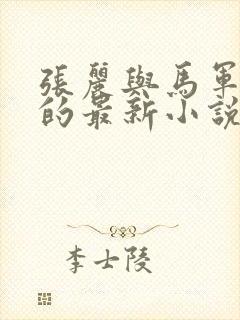 張麗與馬軍
的最新小說
李士陵